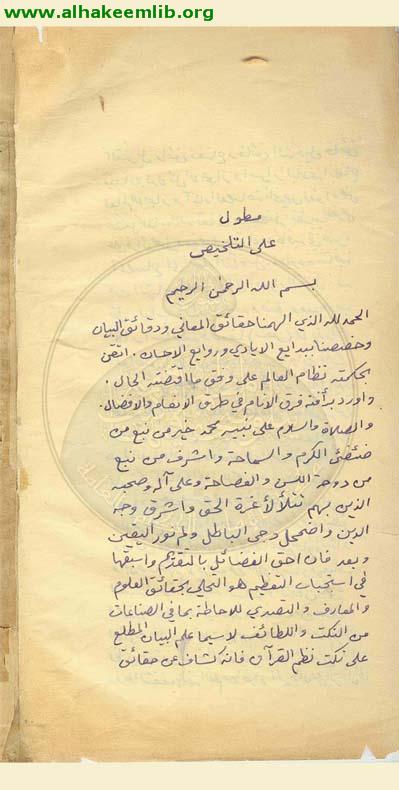 www.alhakeemlib.org
مطول
على التلخيص
بسم الله الرحمن الرحيم
الحمد لله الذي الهمنا حقائق المعاني ودقائق البيان
وخصصنا ببدايع الايادي وروايع الاحسان. اتقن
بحكمته نظام العالم على وفق ما اقتضته الحال.
واورد برأفته فرق الانام في طرق الانعام والافضال.
والصلاة والسلام على نبيه محمد خير من نبع من
ضئضئ الكرم والسماحة واشرف من نبع
من دوحة اللسن والفصاحة وعلى آله وصحبه
الذين بهم تتلألأ غرة الحق واشرق وجه
الدين واضمحل دجى الباطل ولم نور اليقين
وبعد فان احق الفضائل بالتقديم واسبقها
في استجباب التعظيم هو التحلي بحقائق العلوم
والمعارف والتصدي للاحاطة بما في الصناعات
من النكت واللطائف لاسيما علم البيان المطلع
على نكت نظم القرآن فانه كشاف عن حقائق